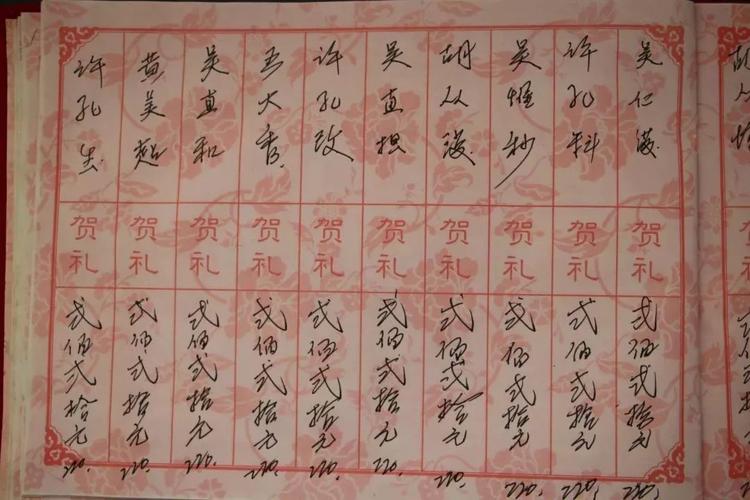 吴仁
贺礼
弍佰弍拾元
220.
许孔科
贺礼
弍佰弍拾元
220.
吴惟秒
贺礼
弍佰弍拾元
220.
胡从
贺礼
弍佰弍拾元
220.
吴直
贺礼
弍佰弍拾元
220.
许孔改
贺礼
弍佰弍拾元
220.
王大香
贺礼
弍佰弍拾元
220.
吴直和
贺礼
弍佰弍拾元
220.
黄美超
贺礼
弍佰弍拾元
220.
许孔生
贺礼
弍佰弍拾元
220.